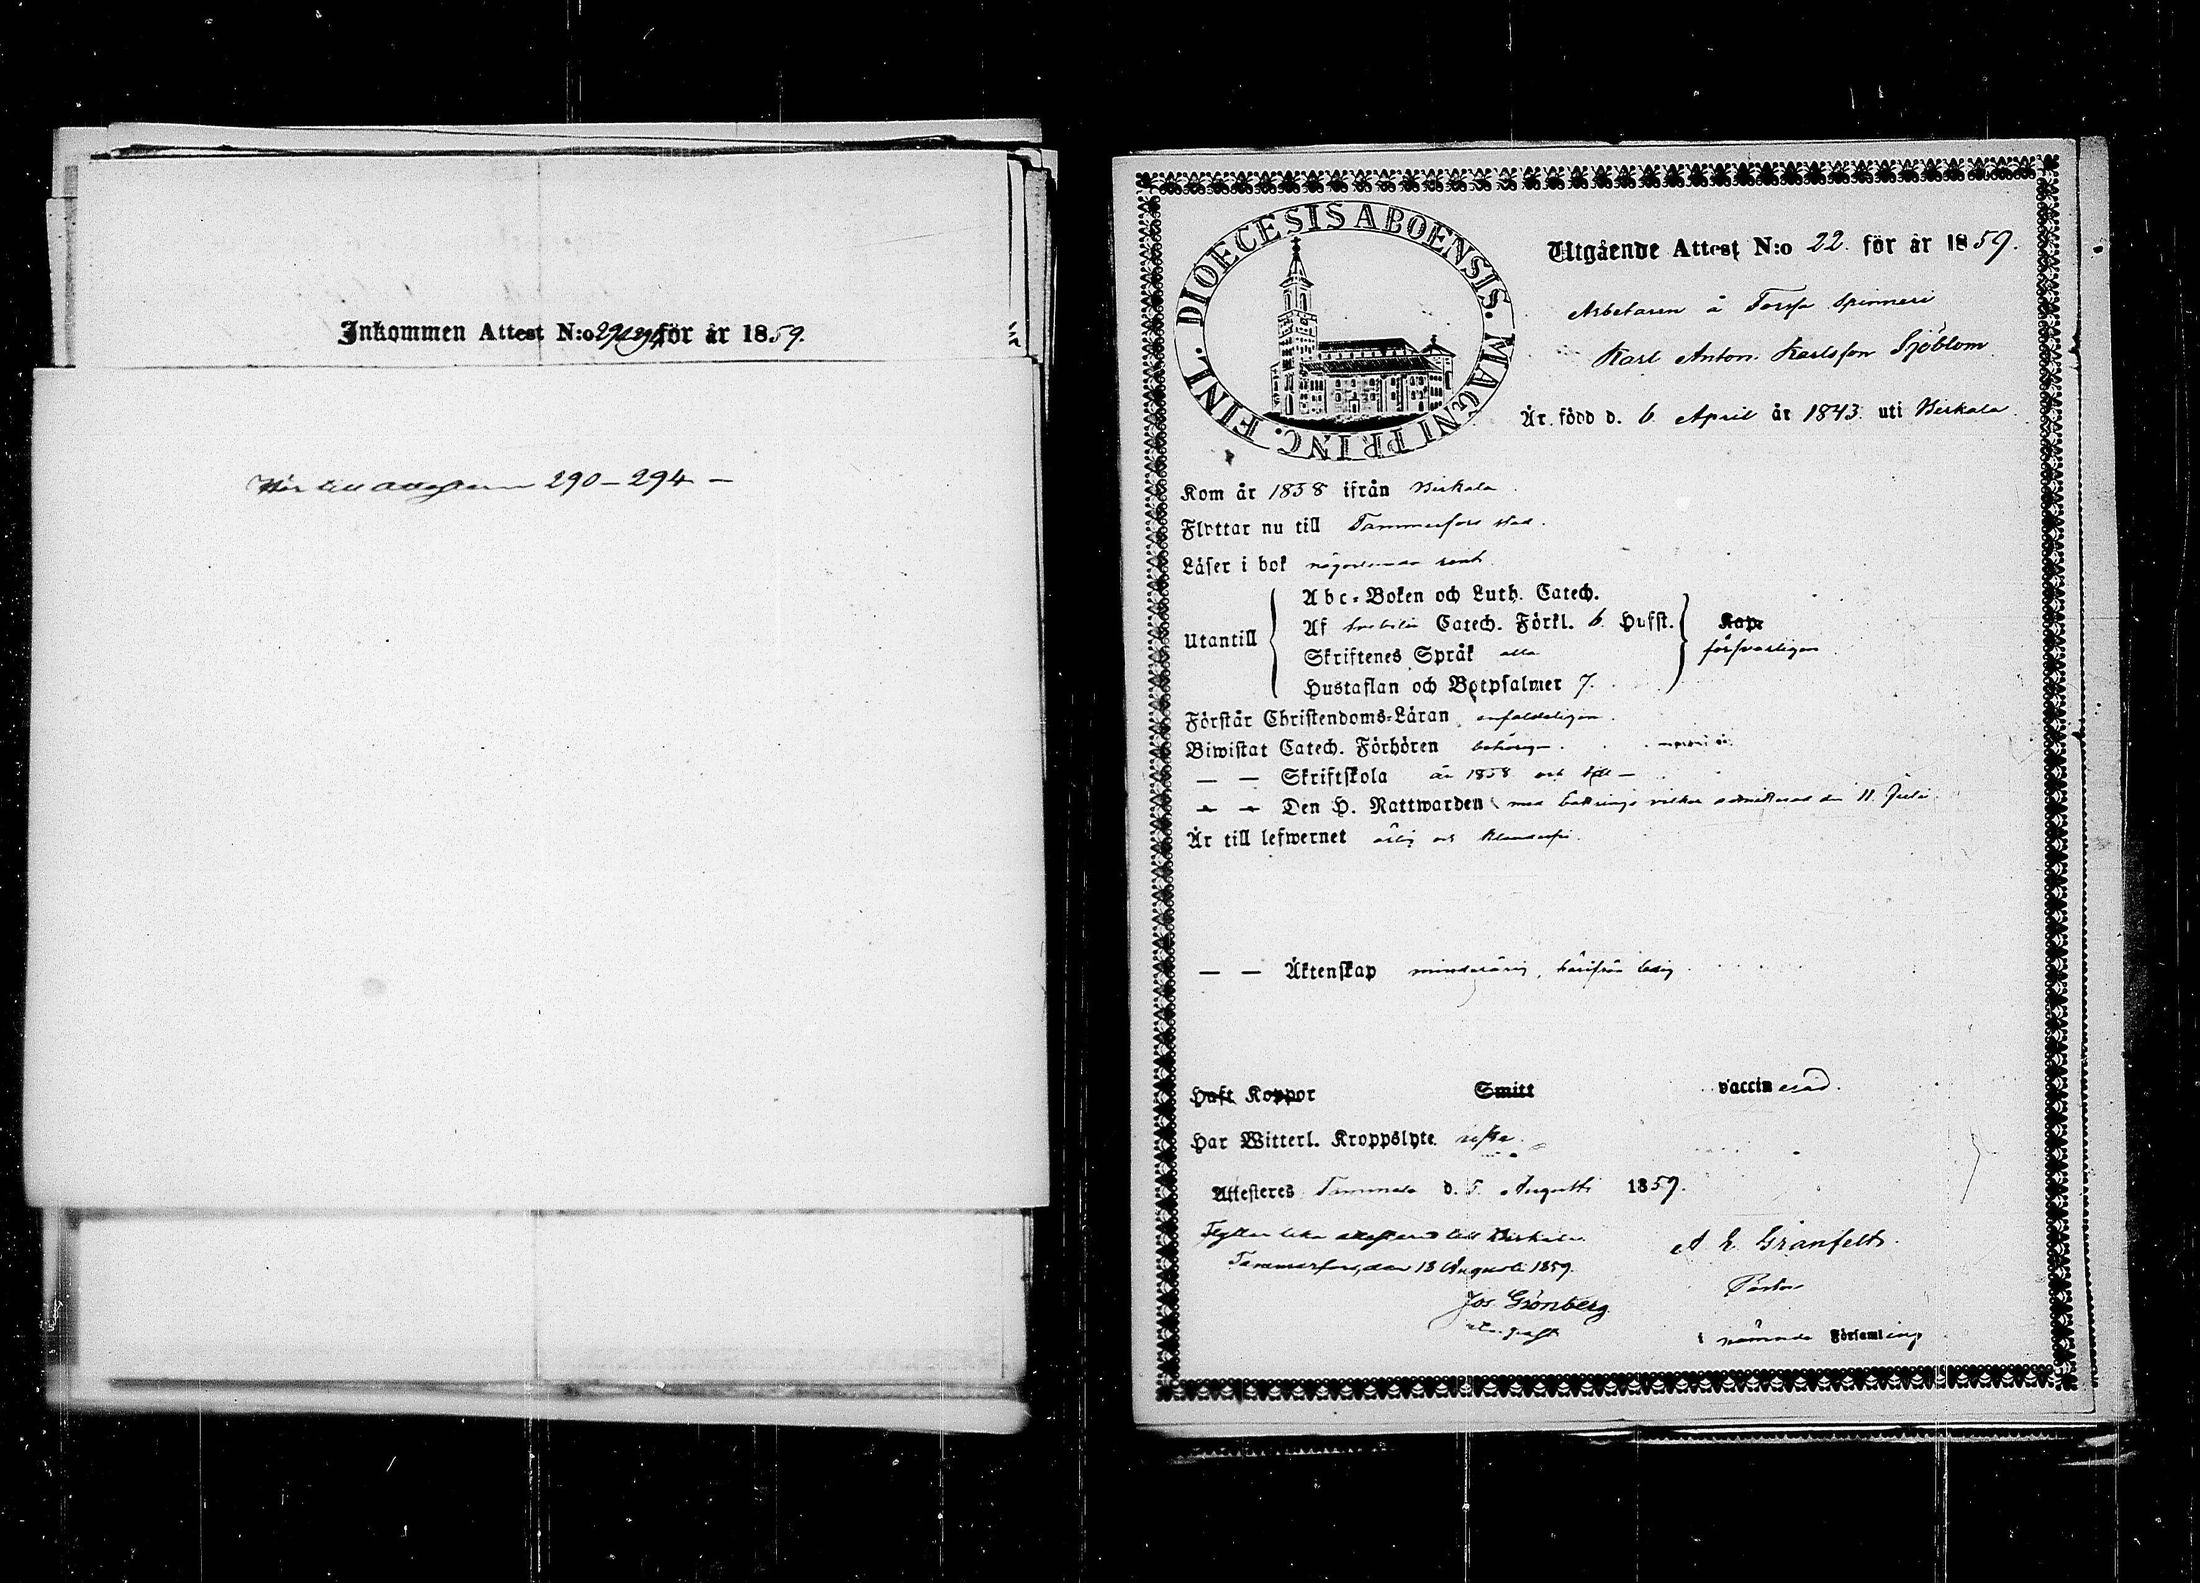 Inkommen Attest N:o 290-294 för år 1859.
Hör till attesterne 290-294 -
DIOECESIS ABOENSIS. MAGNI PRINC. FINL.
Utgående Attest N:o 22. för år 1859.
Arbetaren å Forssa Spinneri
Karl Anton Karlsson Sjöblom
Är född d. 6 April år 1843. uti Birkala
Kom år 1858 ifrån Birkala.
Flyttar nu till Tammerfors stad.
Läser i bok någorlunda rent.
Utantill
Abc-Boken och Luth. Catech.
Af Catech. Förkl. 6. Hufst. Kap.
försvarligen
Skriftenes Språk alla
Hustaflan och Botpsalmer 7.
Förstår Christendoms-Läran enfaldeligen.
Biwistat Catech. Förhören behörigen.
— — Skriftskola år 1858 och
— — Den H. Nattwarden med vilkor admitterad den 11 Juli
Är till lefwernet ärlig och klanderfri.
— — Äktenskap minderårig, härifrån ledig.
Haft Koppor Smitt vaccinerad.
Har Witterl. Kroppslyte
Attesteres Tammela d. 5. Augusti 1859.
Flyttar lika attesterad till Birkala.
Tammerfors, den 18 Augusti 1859.
Jos. Grönberg
A E Granfelt.
Pastor
i nämnde Församling